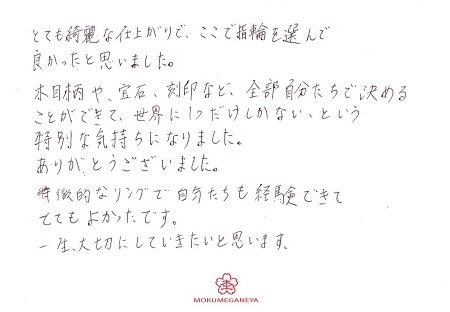 とても綺麗な仕上がりで、ここで指輪を選んで
良かったと思いました。
木目柄や、宝石、刻印など、全部自分たちで決める
ことができて、世界に1つだけしかない、という
特別な気持ちになりました。
ありがとうございました。
特徴的なリングで自分たちも経験できて
とてもよかったです。
一生、大切にしていきたいと思います。
MOKUMEGANEYA